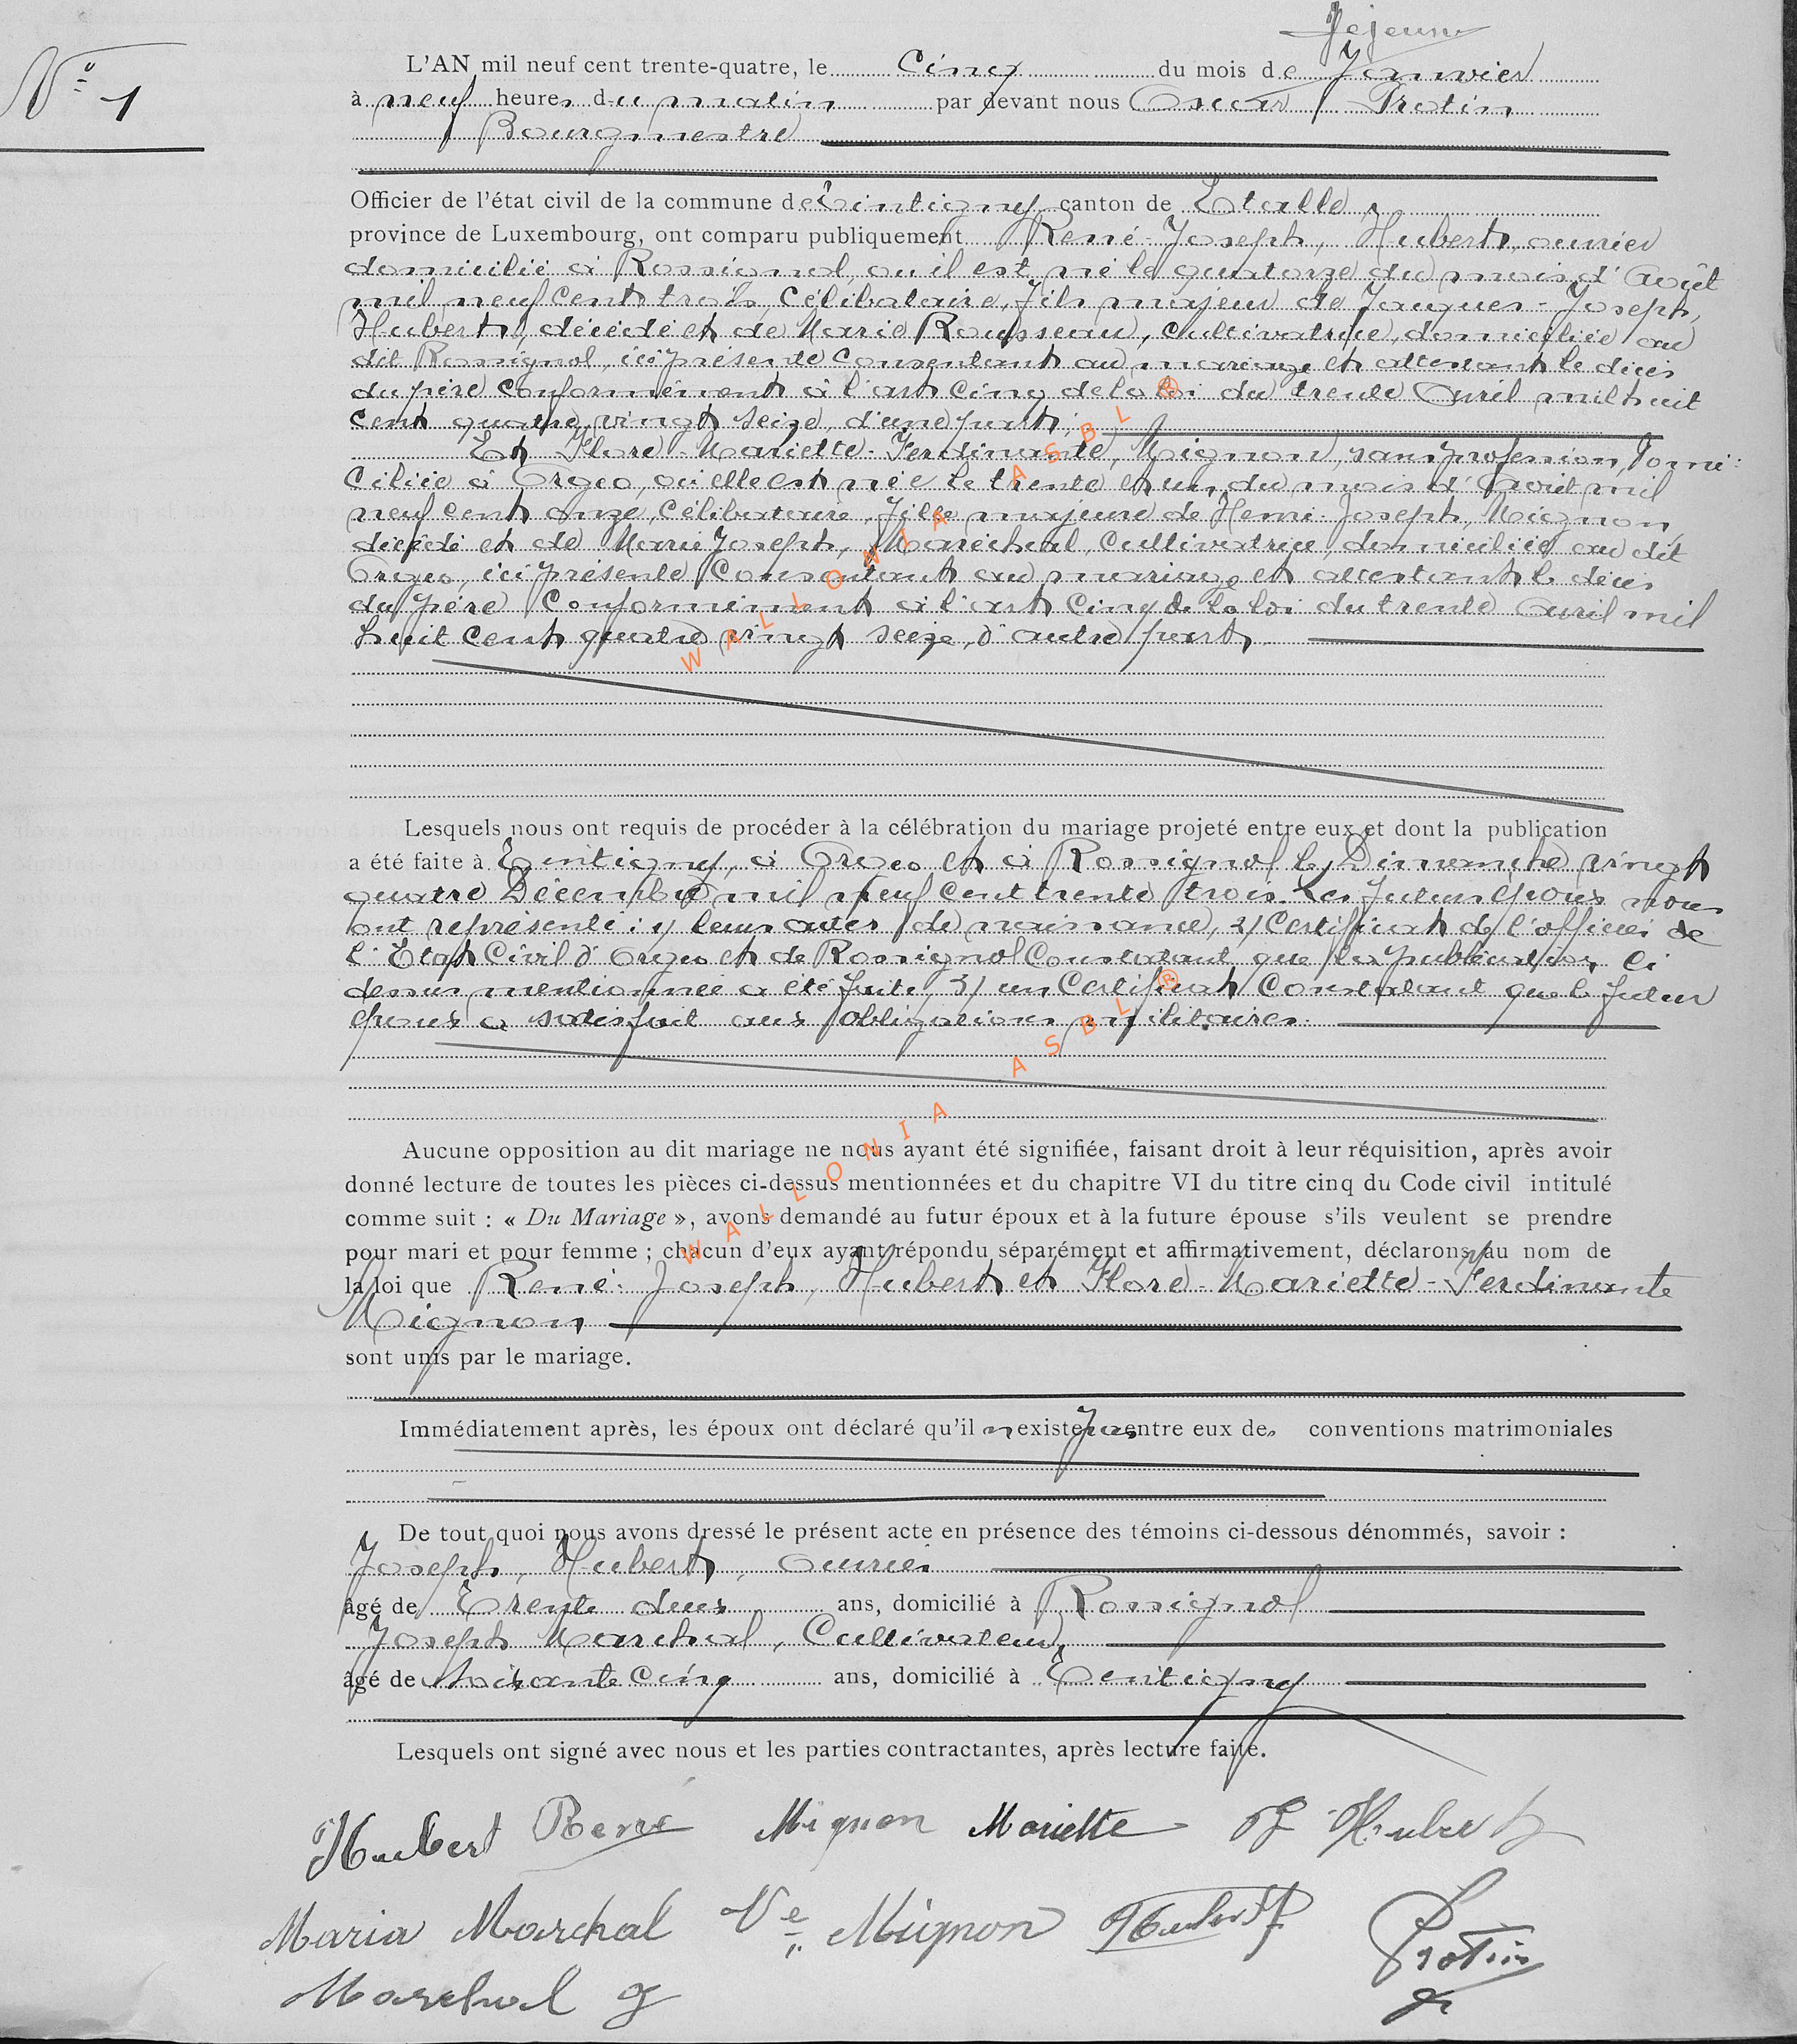 Lejeune
N° 1
L'AN mil neuf cent trente-quatre, le Cinq du mois de Janvier
à neuf heures du matin par devant nous Oscar Protin
Bourgmestre
Officier de l'état civil de la commune de Tintigny canton de Etalle
province de Luxembourg, ont comparu publiquement René-Joseph, Hubert, ouvrier
domicilié à Rossignol, où il est né le quatorze du mois d'Août
mil neuf cent trois, Célibataire, fils majeur de Jacques-Joseph,
Hubert, décédé et de Marie Rousseau, Cultivatrice, domiciliée au
dit Rossignol, ici présente consentant au mariage et attestant le décès
du père conformément à l'art cinq de la loi du trente Avril mil huit
cent quatre vingt seize, d'une part;
Et Flore-Mariette-Ferdinante, Mignon, sans profession, domi-
ciliée à Orgeo, où elle est née le trente et un du mois d'Août mil
neuf cent onze, Célibataire, fille majeure de Henri-Joseph, Mignon,
décédé et de Marie Joseph, Maréchal, Cultivatrice, domiciliée au dit
Orgeo, ici présente Consentant au mariage et attestant le décès
du père Conformément à l'art Cinq de la loi du trente Avril mil
huit cent quatre vingt seize, d'autre part,
Lesquels nous ont requis de procéder à la célébration du mariage projeté entre eux et dont la publication
a été faite à Tintigny, à Orgeo et à Rossignol le Dimanche vingt
quatre Décembre mil neuf cent trente trois. Les futurs époux nous
ont représenté: 1/ leurs actes de naissance, 2/ Certificat de l'officier de
l'Etat Civil d'Orgeo et de Rossignol Constatant que la publication ci
dessus mentionnée a été faite, 3/ un Certificat Constatant que le futur
époux a satisfait aux obligations militaires.
Aucune opposition au dit mariage ne nous ayant été signifiée, faisant droit à leur réquisition, après avoir
donné lecture de toutes les pièces ci-dessus mentionnées et du chapitre VI du titre cinq du Code civil intitulé
comme suit : « Du Mariage », avons demandé au futur époux et à la future épouse s'ils veulent se prendre
pour mari et pour femme ; chacun d'eux ayant répondu séparément et affirmativement, déclarons au nom de
la loi que René-Joseph, Hubert et Flore-Mariette-Ferdinante
Mignon
sont unis par le mariage.
Immédiatement après, les époux ont déclaré qu'il n'existe pas entre eux des conventions matrimoniales
De tout quoi nous avons dressé le présent acte en présence des témoins ci-dessous dénommés, savoir :
Joseph, Hubert, ouvrier
âgé de Trente deux ans, domicilié à Rossignol
Joseph Marchal, Cultivateur,
âgé de soixante Cinq ans, domicilié à Tintigny
Lesquels ont signé avec nous et les parties contractantes, après lecture faite.
Hubert René Mignon Mariette Hubert
Maria Marchal Ve Mignon Hubert Protin
Marchal J
WALLONIA ASBL ®
WALLONIA ASBL ®